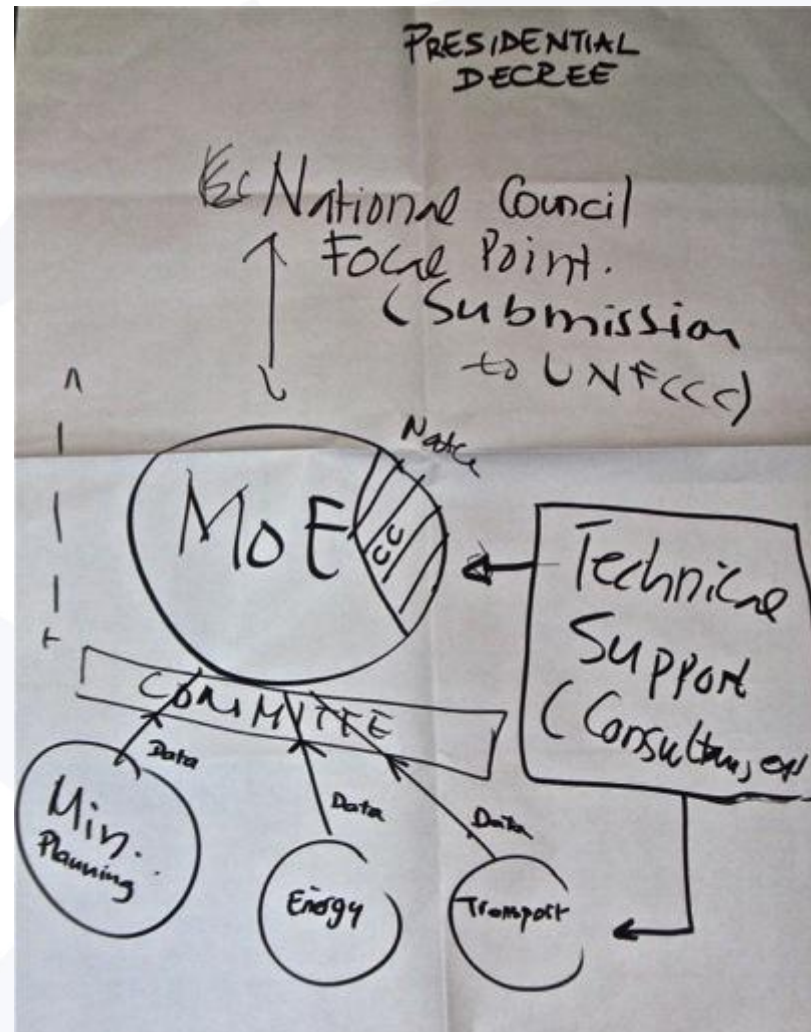 PRESIDENTIAL
DECREE
National Council
Focal Point.
(Submission
to UNFCCC)
MoE
CC
Technical
Support
(Consultans,
COMMITEE
Data
Data
Data
Min..
Planning
Energy
Transport